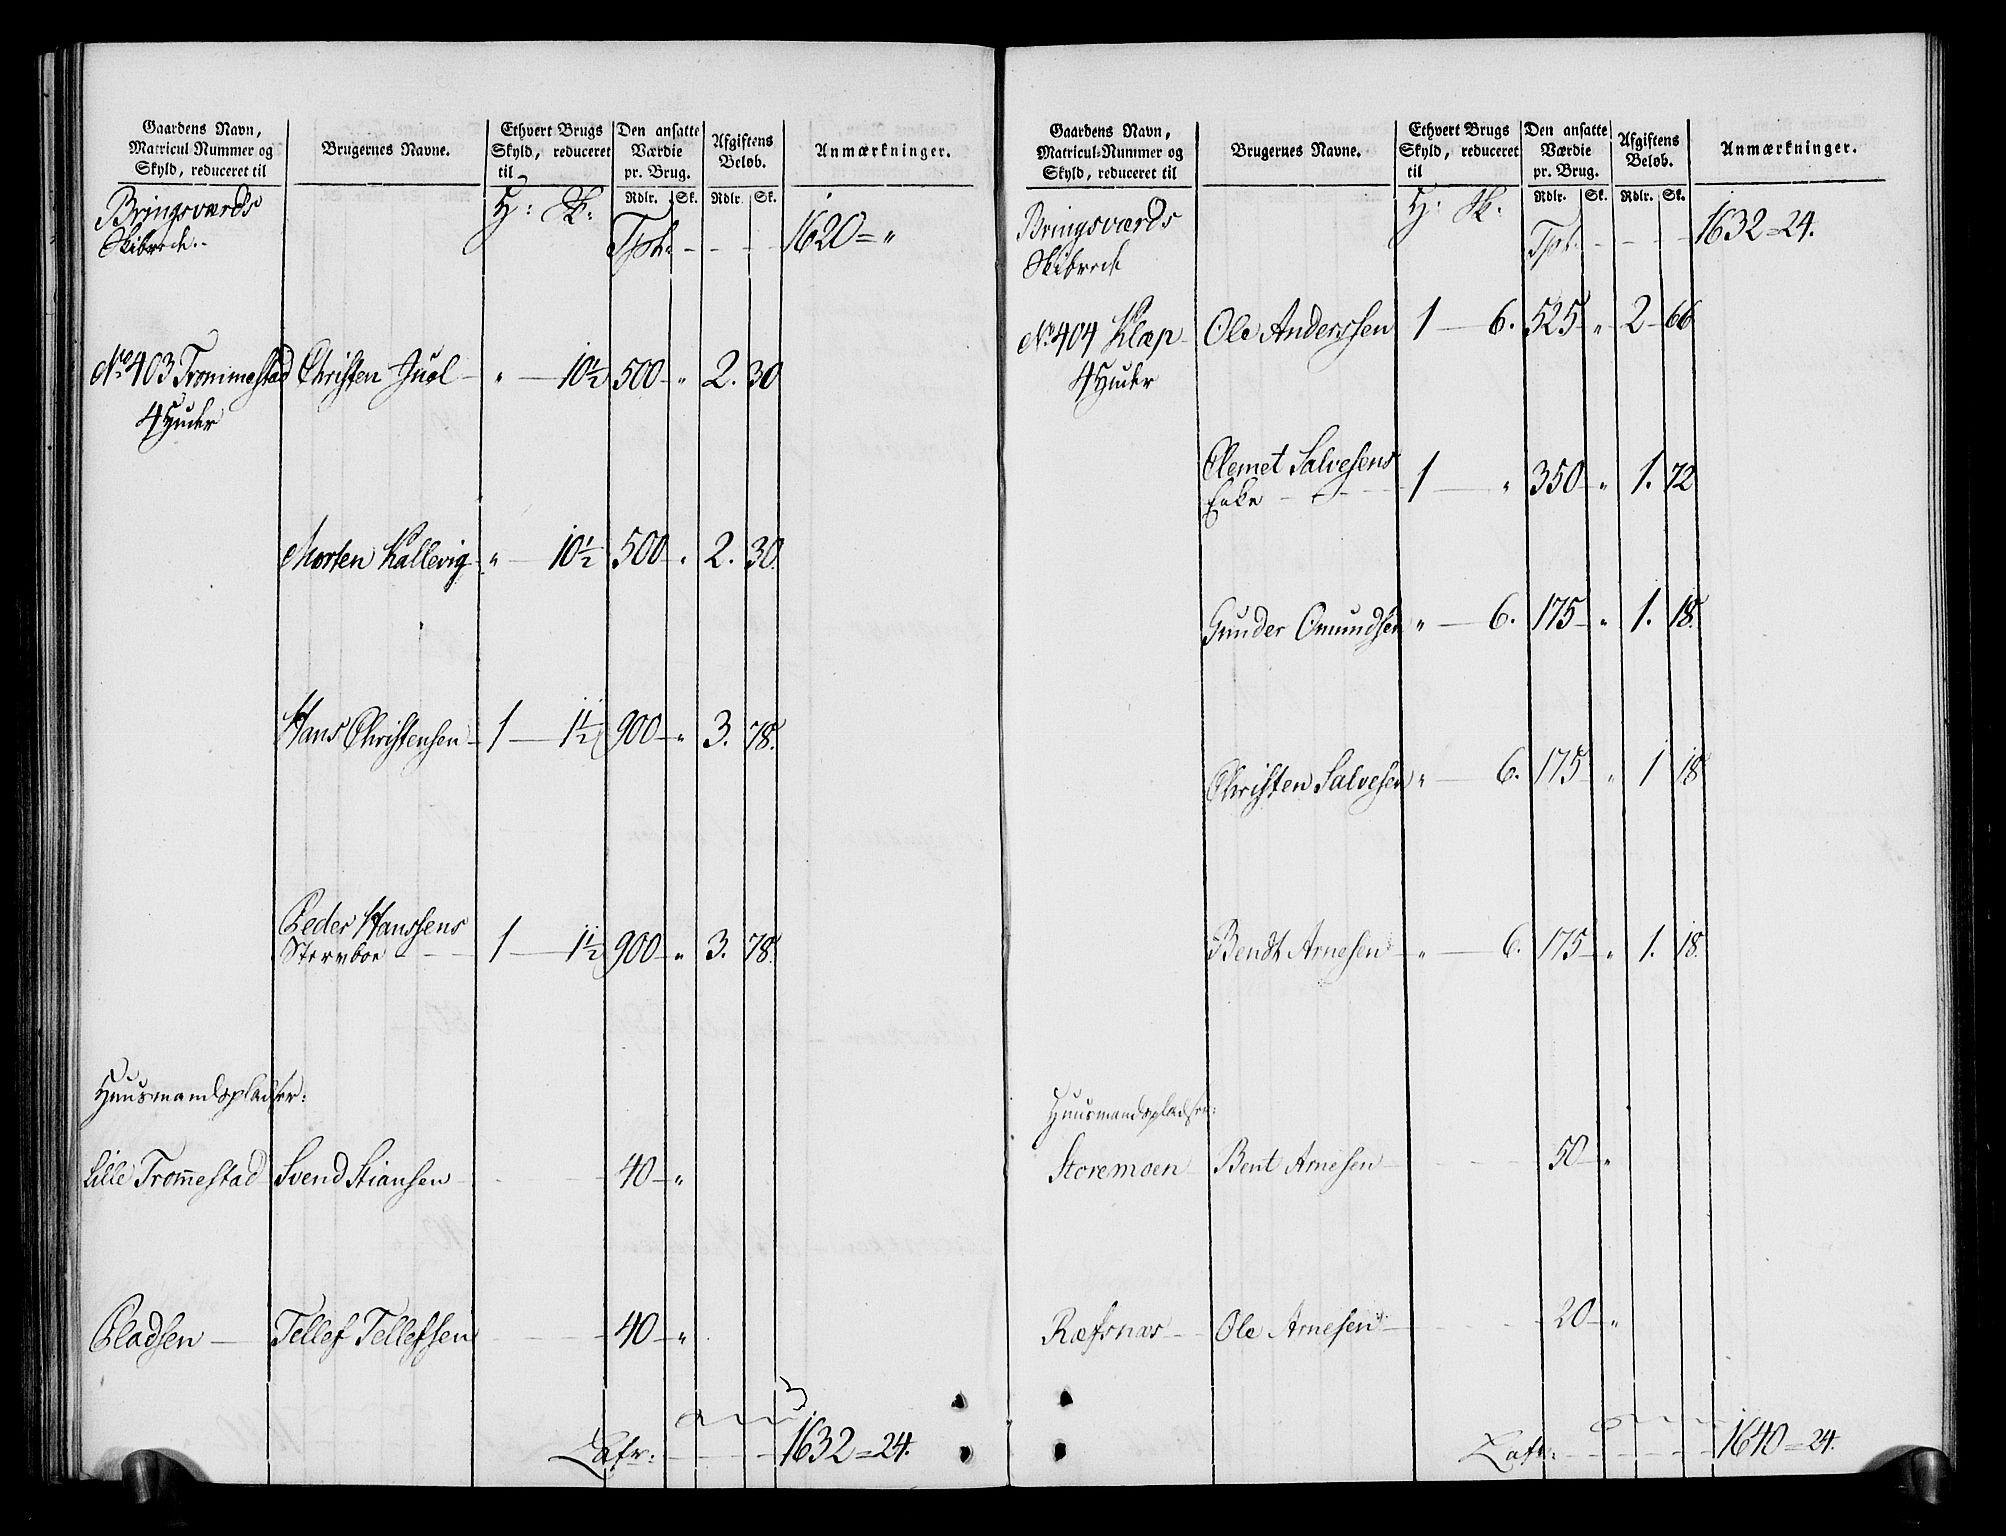 Gaardens Navn, Matricul-Nummer og Skyld, reduceret til | Brugernes Navne. | Ethvert Brugs Skyld, reduceret til | Den ansatte Værdie pr. Brug. | Afgiftens Beløb. | Anmærkninger.
H: Sk: | Rdlr. Sk. | Rdlr. Sk.
Bringsværds Tpt: - - - 1620 = "
Skibrede.
No 403 Trommestad Christen Juel - " - 10½ 500 - " 2. 30
4 Huder
Morten Kallevig - " - 10½ 500 - " 2. 30.
Hans Christensen - 1 - 1½ 900 - " 3. 78.
Peder Hanssens
Stervboe - - - 1 - 1½ 900 - " 3. 78.
Huusmandspladser:
Lille Trom̅estad Svend Stiansen - - - 40 - "
Pladsen - Tellef Tellefsen - - - 40 - "
Lafr: - - - 1632 = 24.
Gaardens Navn, Matricul-Nummer og Skyld, reduceret til | Brugernes Navne. | Ethvert Brugs Skyld, reduceret til | Den ansatte Værdie pr. Brug. | Afgiftens Beløb. | Anmærkninger.
H: Sk: | Rdlr. Sk. | Rdlr. Sk.
Bringsværds Tpt. - - - 1632 = 24.
Skibrede
No 404 Klæp - Ole Anderssen 1 - 6. 525 - " 2 - 66
4 Huder
Clemet Salvesens
Enke - - - 1 - " 350 - " 1. 72
Gunder Omundsen " - 6. 175 - " 1. 18.
Christen Salvesen " - 6. 175 - " 1 18
Bendt Arnesen - " - 6. 175 - " 1. 18.
Huusmandspladser:
Storemoen - Bent Arnesen - - - 50 - "
Ræfsnæs - - Ole Arnesen - - - 20 - "
Lafr: - - - 1640 = 24.